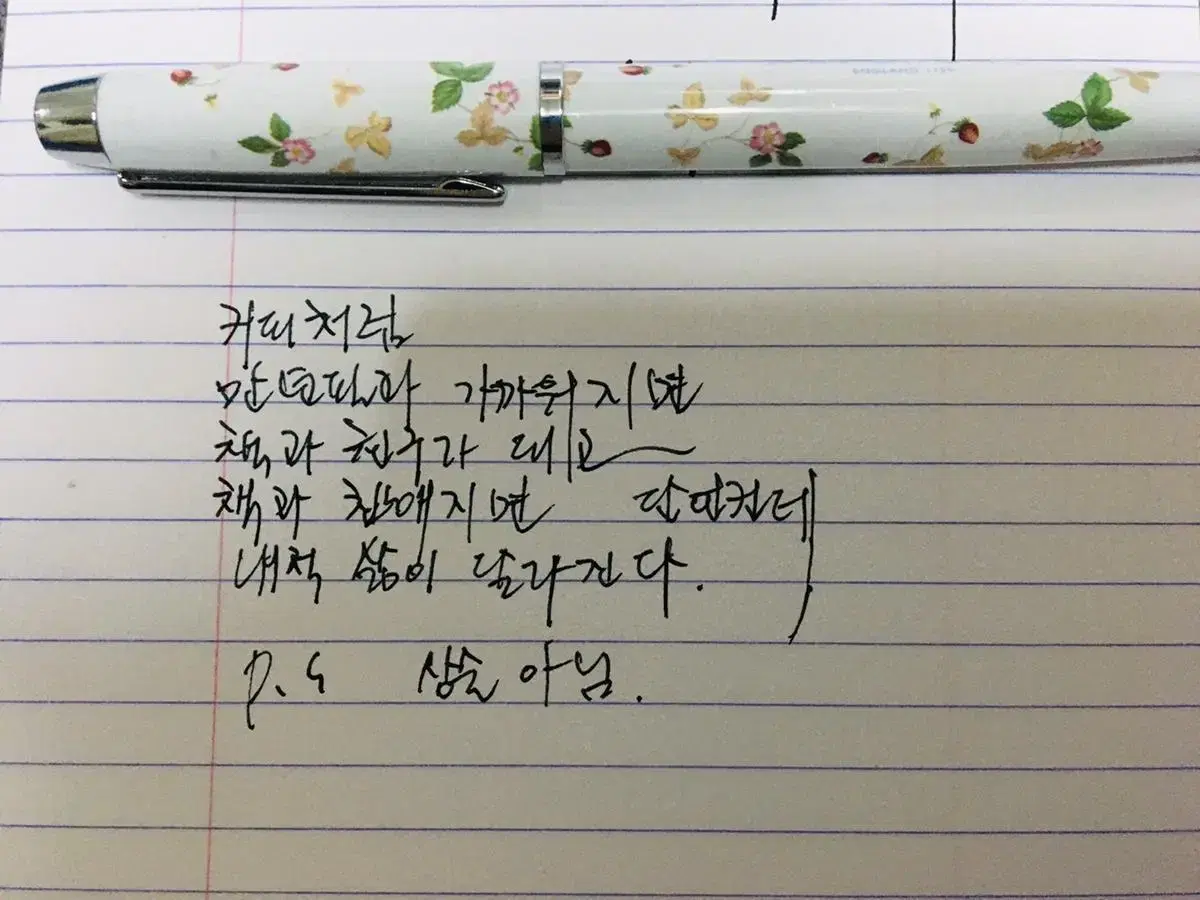 커피처럼
만년필과 가까워지면
책과 친구가 되고
책과 친해지면 단언컨데
내적 삶이 달라진다.
P.S 상술 아님.